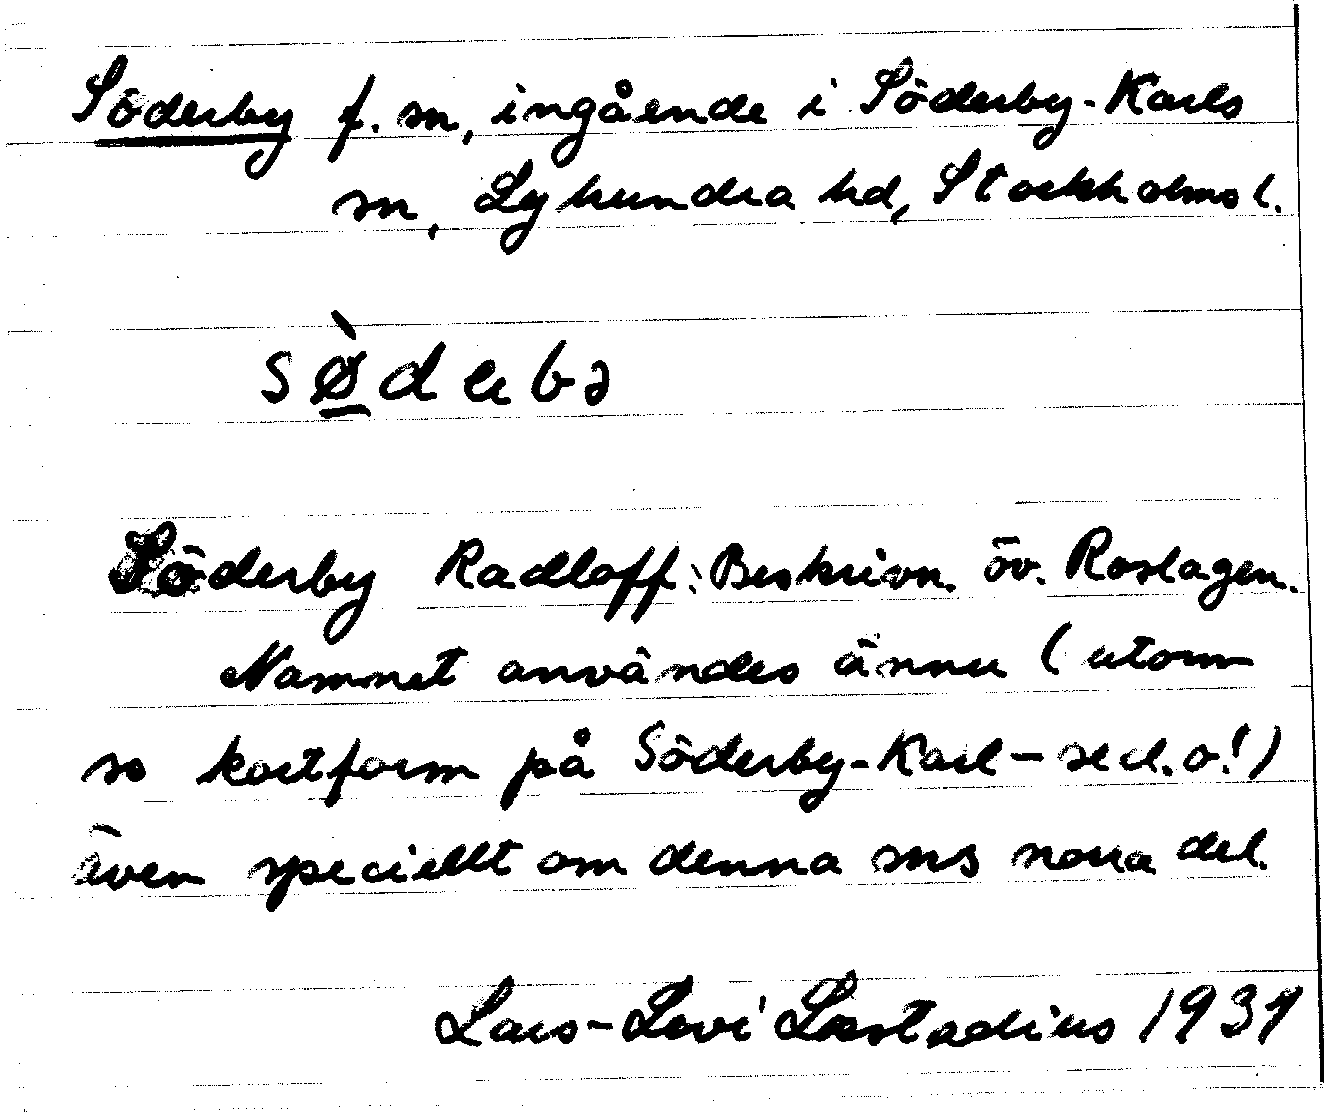 Söderby f. sn, ingående i Söderby-Karls
sn, Lyhundra hd, Stockholms l.
Söderby Radloff: Beskrivn. öv. Roslagen.
Namnet användes ännu (utom
so kortform på Söderby-Karl – se d. o.!)
även speciellt om denna sns norra del.
Lars-Levi Læstadius 1937